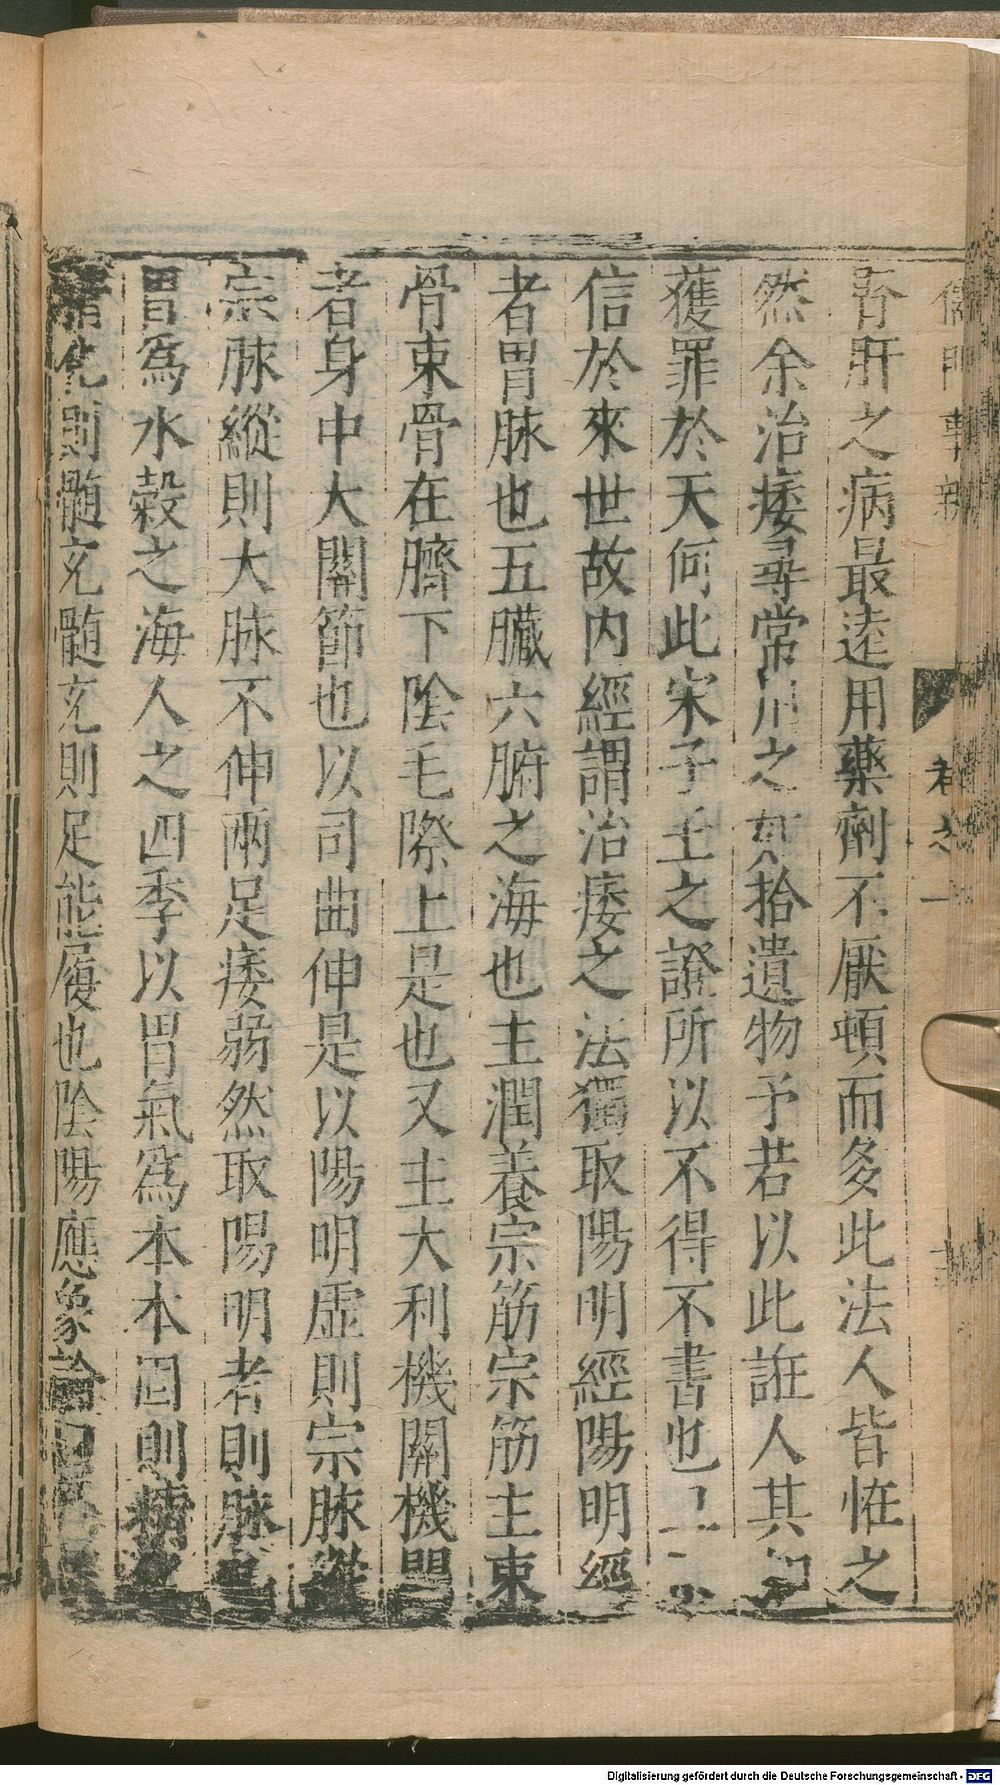 儒門事親
卷之一
腎肝之病最遠用藥劑不厭頓而多此法人皆恠之
然余治痿尋常用之如拾遺物予若以此誑人其
獲罪於天何此宋子玉之證所以不得不書也
信於來世故內經謂治痿之法獨取陽明經陽明經
者胃脉也五臟六腑之海也主潤養宗筋宗筋主束
骨束骨在臍下陰毛際上是也又主大利機關機關
者身中大關節也以司曲伸是以陽明虛則宗脉縱
宗脉縱則大脉不伸兩足痿弱然取陽明者則脉也
胃爲水穀之海人之四季以胃氣爲本本固則精化
精化則髓充髓充則足能履也陰陽應象論曰
Digitalisierung gefördert durch die Deutsche Forschungsgemeinschaft - DFG